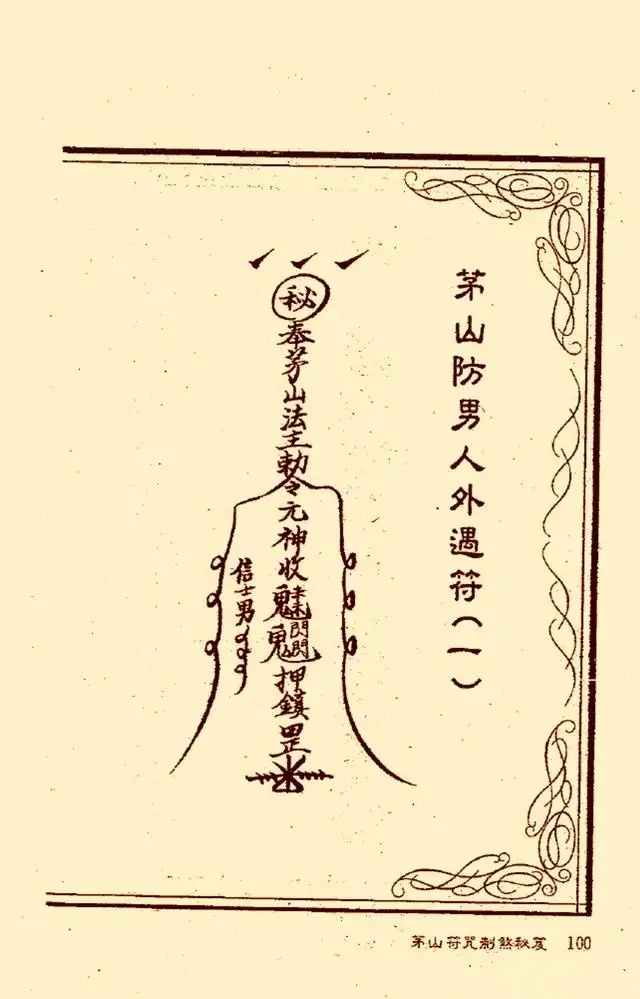 茅山防男人外遇符（一）
秘
奉茅山法主勅令元神收押鎮罡
信士男
茅山符咒制煞秘笈 100